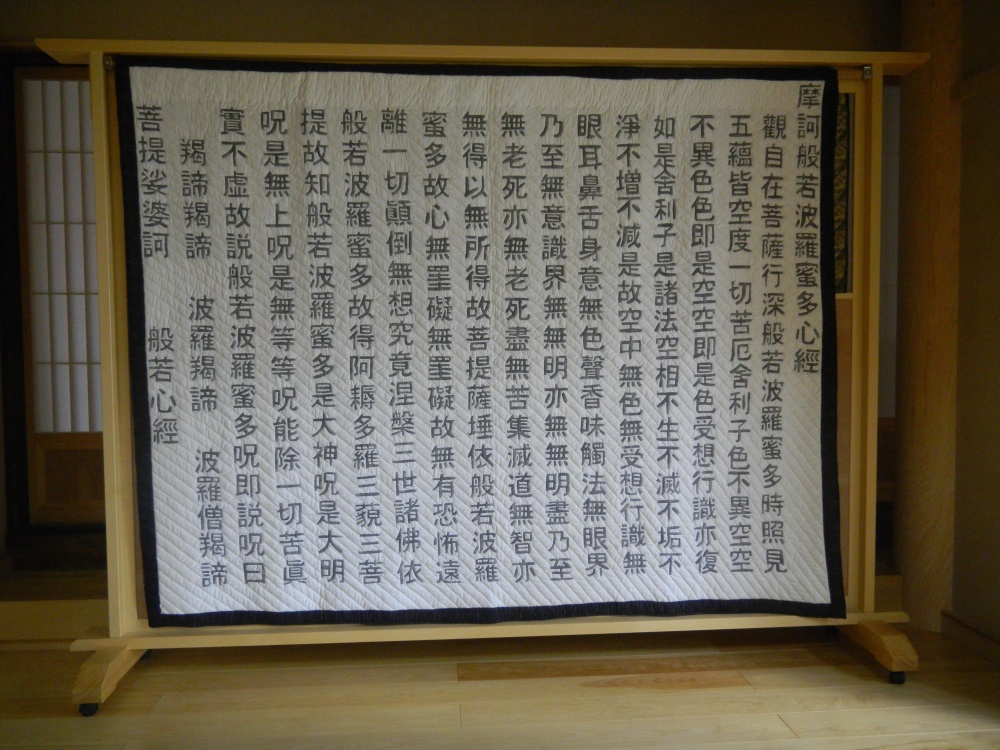 摩訶般若波羅蜜多心經
觀自在菩薩行深般若波羅蜜多時照見
五蘊皆空度一切苦厄舍利子色不異空空
不異色色即是空空即是色受想行識亦復
如是舍利子是諸法空相不生不滅不垢不
淨不增不減是故空中無色無受想行識無
眼耳鼻舌身意無色聲香味觸法無眼界
乃至無意識界無無明亦無無明盡乃至
無老死亦無老死盡無苦集滅道無智亦
無得以無所得故菩提薩埵依般若波羅
蜜多故心無罣礙無罣礙故無有恐怖遠
離一切顛倒無想究竟涅槃三世諸佛依
般若波羅蜜多故得阿耨多羅三藐三菩
提故知般若波羅蜜多是大神呪是大明
呪是無上呪是無等等呪能除一切苦眞
實不虚故説般若波羅蜜多呪即説呪曰
羯諦羯諦 波羅羯諦 波羅僧羯諦
菩提娑婆訶 般若心經